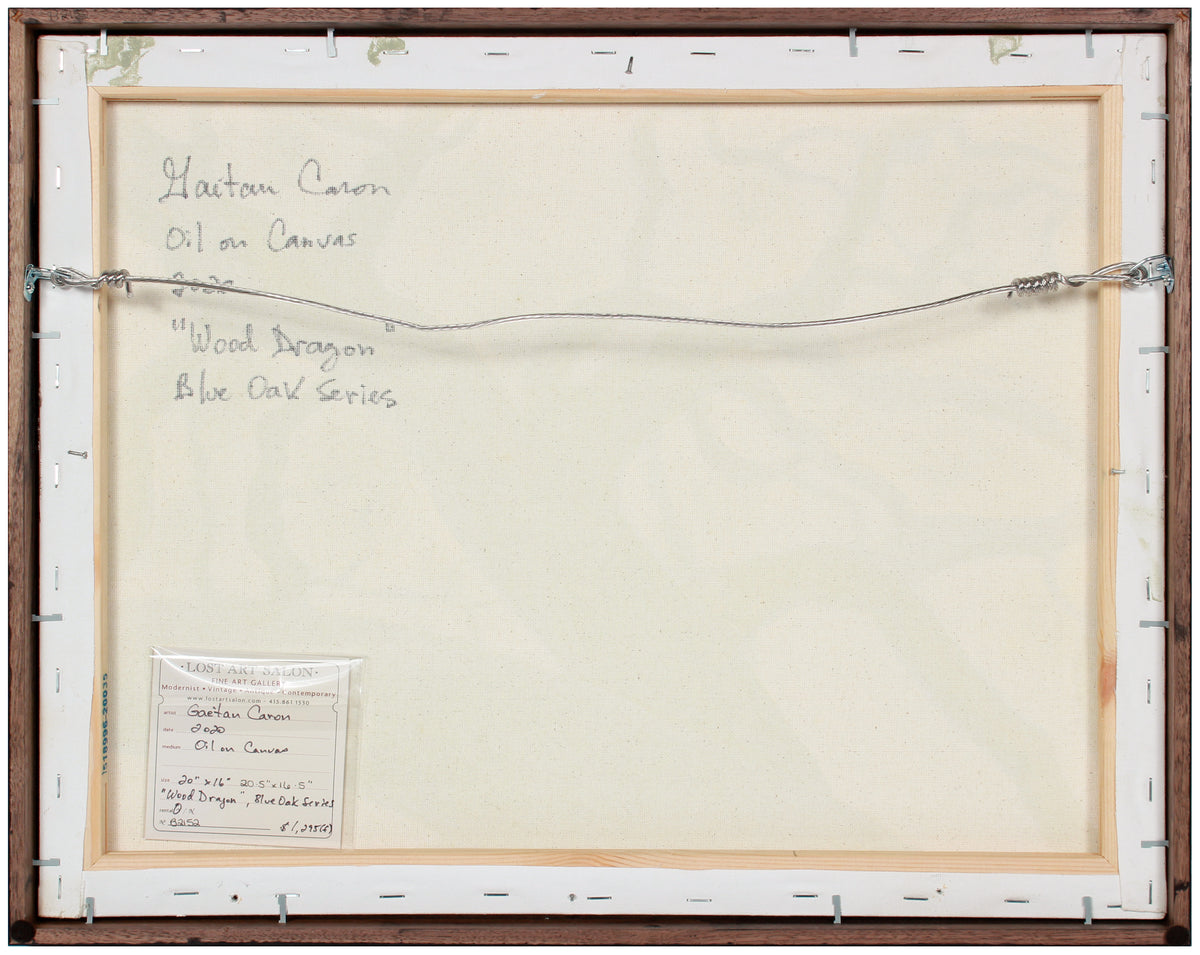 Gaétan Caron
Oil on Canvas
2020
"Wood Dragon"
Blue Oak Series
·LOST ART SALON·
FINE ART GALLERY
Modernist • Vintage • Antique • Contemporary
www.lostartsalon.com · 415.861.1530
artist Gaëtan Caron
date 2020
medium Oil on Canvas
size 20" x 16" 20.5" x 16.5"
"Wood Dragon", Blue Oak Series
B2152
$1,295(f)
1518996-20035